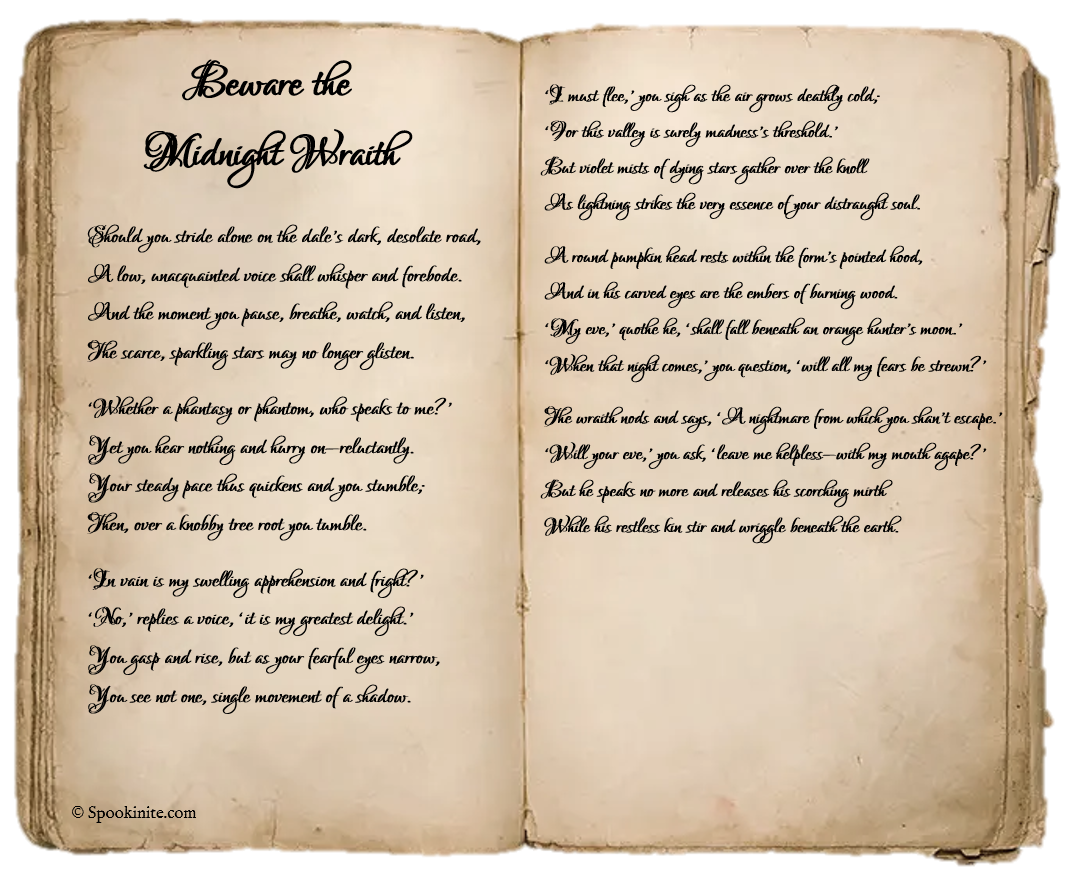 Beware the
Midnight Wraith
Should you stride alone on the dale's dark, desolate road,
A low, unacquainted voice shall whisper and forebode.
And the moment you pause, breathe, watch, and listen,
The scarce, sparkling stars may no longer glisten.
‘Whether a phantasy or phantom, who speaks to me?’
Yet you hear nothing and hurry on—reluctantly.
Your steady pace thus quickens and you stumble;
Then, over a knobby tree root you tumble.
‘In vain is my swelling apprehension and fright?’
‘No,’ replies a voice, ‘it is my greatest delight.’
You gasp and rise, but as your fearful eyes narrow,
You see not one, single movement of a shadow.
© Spookinite.com
‘I must flee,’ you sigh as the air grows deathly cold;
‘For this valley is surely madness's threshold.’
But violet mists of dying stars gather over the knoll
As lightning strikes the very essence of your distraught soul.
A round pumpkin head rests within the form's pointed hood,
And in his carved eyes are the embers of burning wood.
‘My eve,’ quothe he, ‘shall fall beneath an orange hunter's moon.’
‘When that night comes,’ you question, ‘will all my fears be strewn?’
The wraith nods and says, ‘A nightmare from which you shan't escape.’
‘Will your eve,’ you ask, ‘leave me helpless—with my mouth agape?’
But he speaks no more and releases his scorching mirth
While his restless kin stir and wriggle beneath the earth.